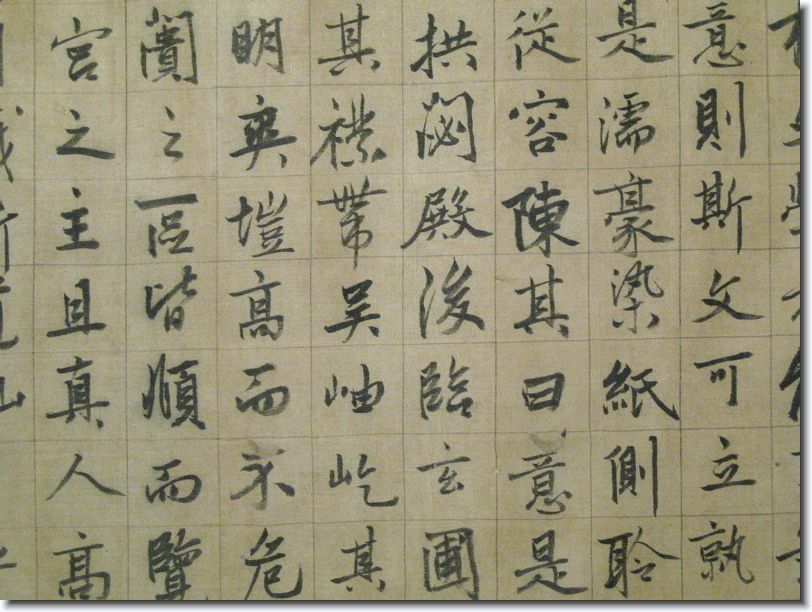 意則斯文可立孰
是濡豪染紙側聆
從容陳其曰意是
拱閟殿後臨玄圃
其襟帶吴岫屹其
明爽塏高而不危
闠之區皆順而覽
宫之主且真人高